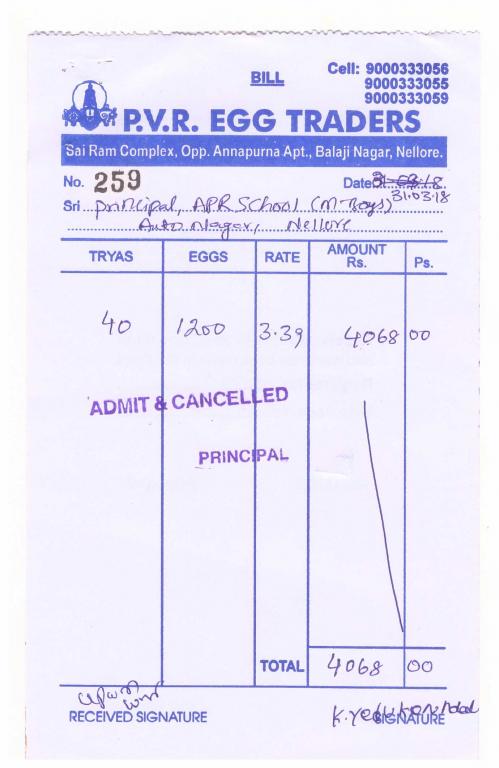 BILL
Cell: 9000333056
9000333055
9000333059
P.V.R. EGG TRADERS
Sai Ram Complex, Opp. Annapurna Apt., Balaji Nagar, Nellore.
No. 259 Date 31-03-18
31.03.18
Sri Principal, APR School (M-Boys)
Auto Nagar, Nellore
TRYAS EGGS RATE AMOUNT Rs. Ps.
40 1200 3.39 4068 00
ADMIT & CANCELLED
PRINCIPAL
TOTAL 4068 00
RECEIVED SIGNATURE SIGNATURE